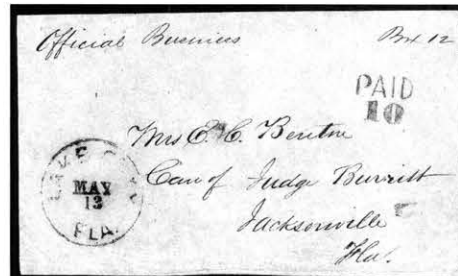 Official Business Box 12
PAID
10
Mrs E. C. Benton
Care of Judge Burritt
Jacksonville
Fla.
LIVE OAK
MAY
13
FLA.